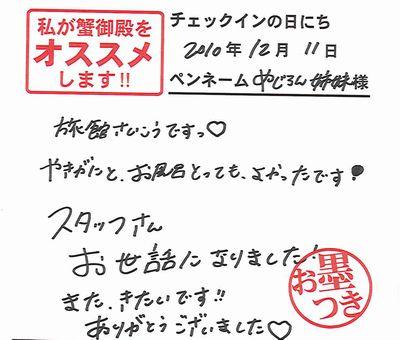 私が蟹御殿を
オススメ
します!!
チェックインの日にち
2010年12月11日
ペンネーム めじろん姉妹様
旅館さいこうですっ♡
やきがにと、お風呂とっても、よかったです!
スタッフさん
お世話になりました!
また、きたいです!!
ありがとうございました♡
お墨つき